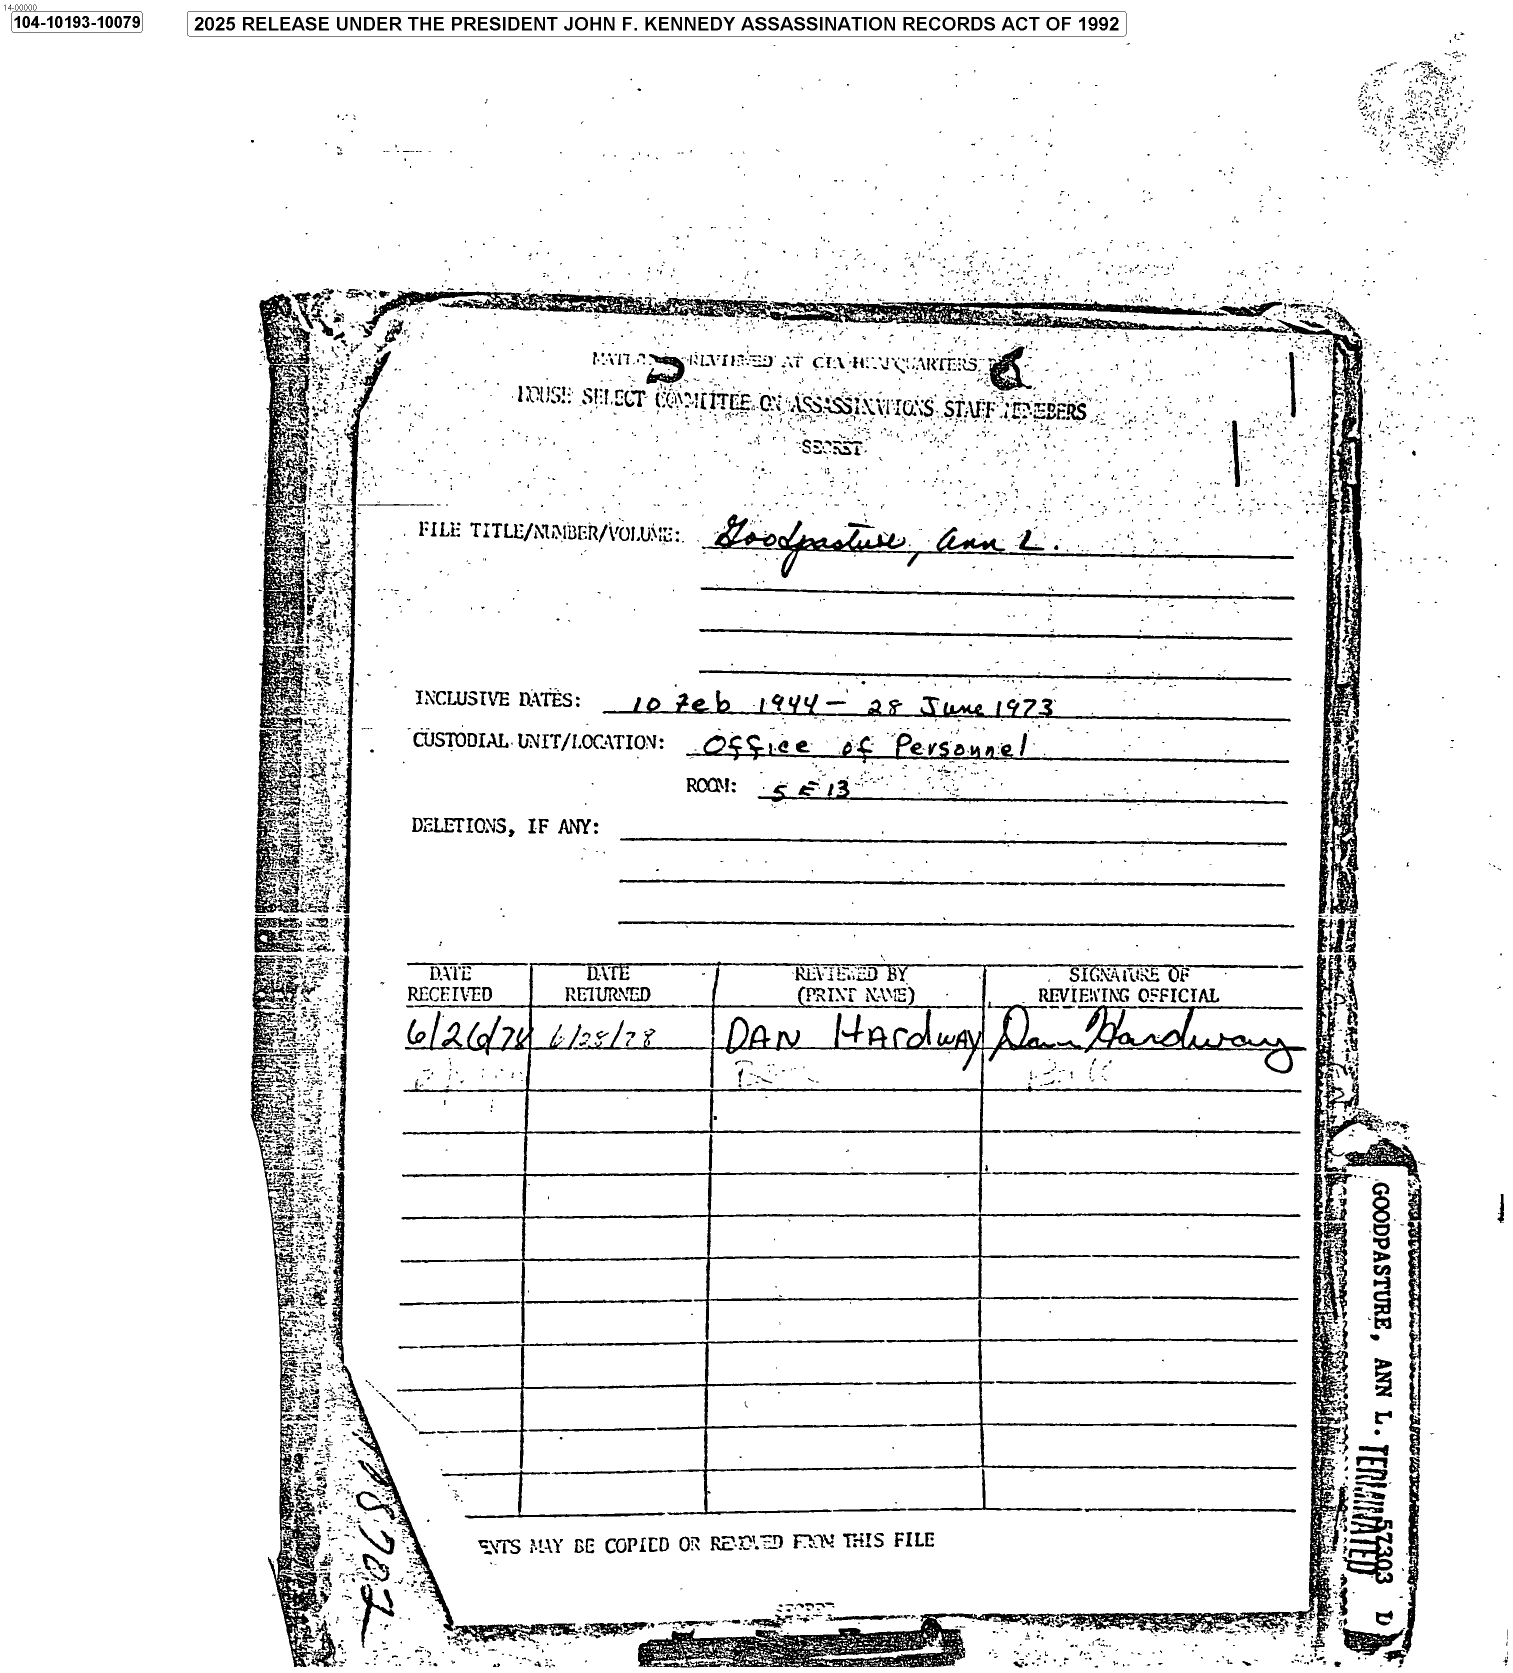 14-00000
104-10193-10079
2025 RELEASE UNDER THE PRESIDENT JOHN F. KENNEDY ASSASSINATION RECORDS ACT OF 1992
REVIEWED AT CIA HEADQUARTERS
HOUSE SELECT COMMITTEE ON ASSASSINATIONS STAFF MEMEBERS
SECRET
FILE TITLE/NUMBER/VOLUME: Goodpasture, Ann L.
INCLUSIVE DATES: 10 Feb 1944 - 28 June 1973
CUSTODIAL UNIT/LOCATION: Office of Personnel
ROOM: 5 E 13
DELETIONS, IF ANY:
DATE RECEIVED
DATE RETURNED
REVIEWED BY (PRINT NAME)
SIGNATURE OF REVIEWING OFFICIAL
6/26/78 6/28/78 DAN HArdwAy Dan Hardway
ENTS MAY BE COPIED OR REMOVED FROM THIS FILE
SECRET
GOODPASTURE, ANN L. 57303 D
TERMINATED